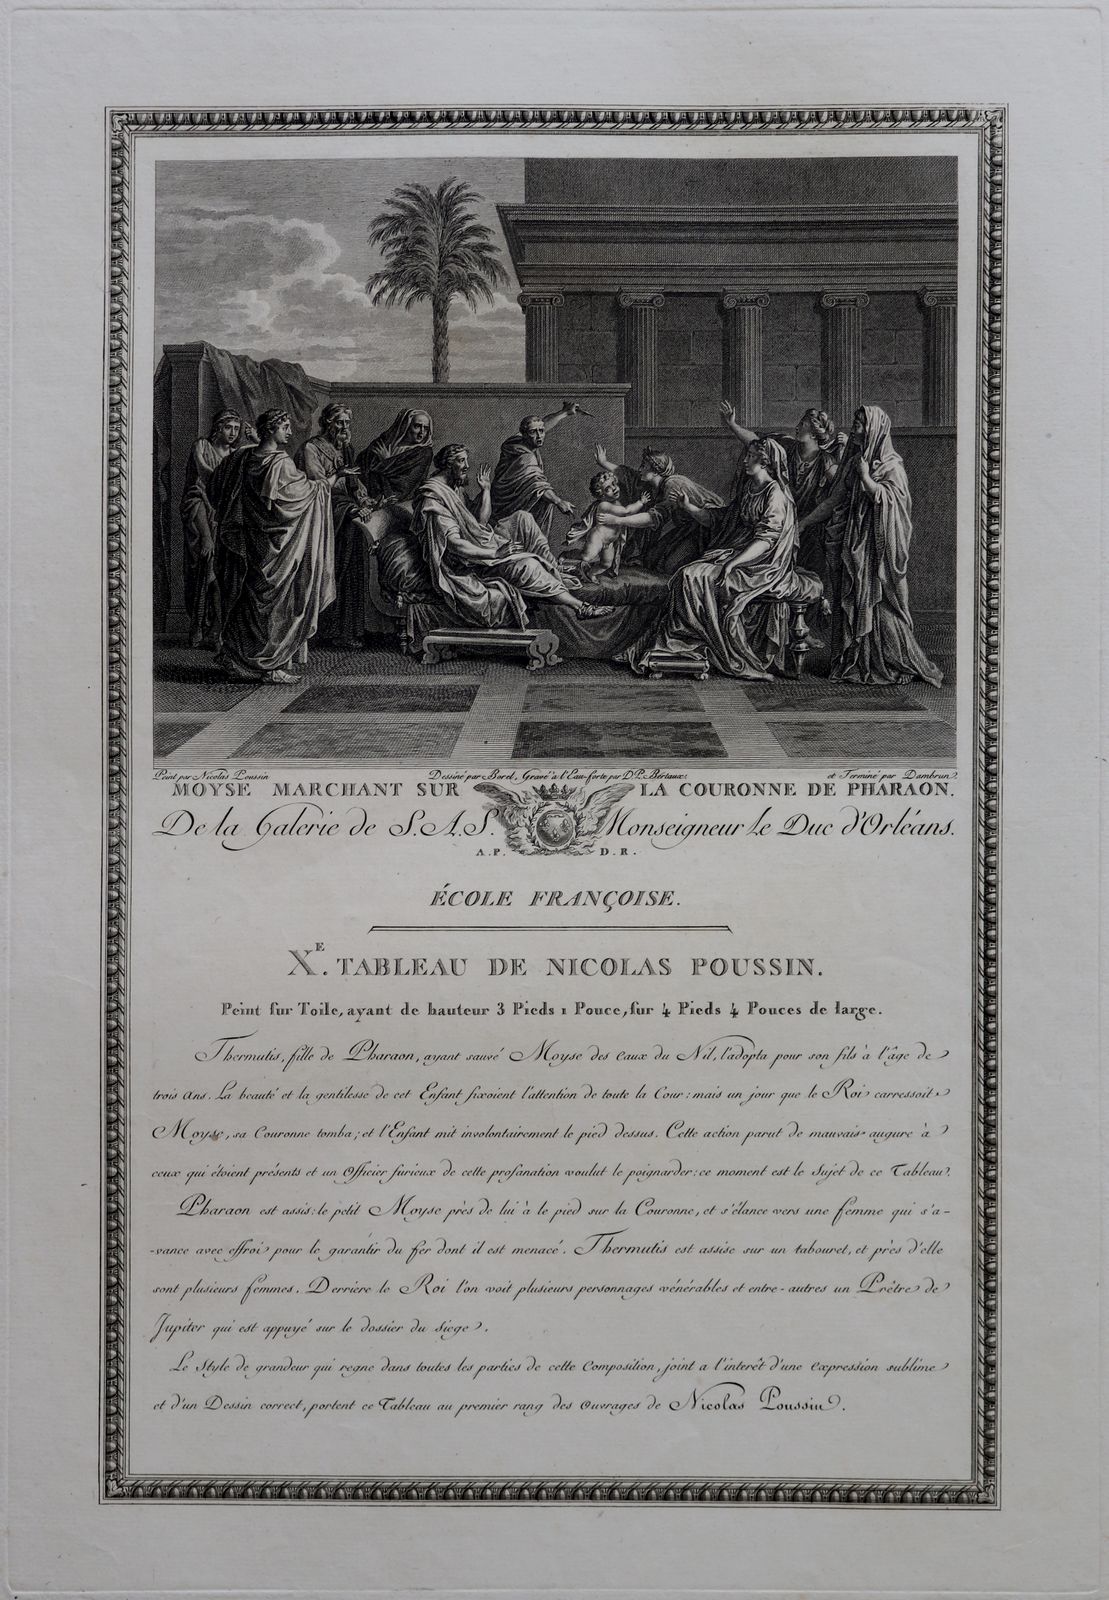 Peint par Nicolas Poussin Dessiné par Borel, Gravé à l'Eau-forte par D.P. Bertaux, et Terminé par Dambrun.
MOYSE MARCHANT SUR LA COURONNE DE PHARAON.
De la Galerie de S.A.S. Monseigneur Le Duc d'Orléans.
A.P. D.R.
ÉCOLE FRANÇOISE.
XE. TABLEAU DE NICOLAS POUSSIN.
Peint sur Toile, ayant de hauteur 3 Pieds 1 Pouce, sur 4 Pieds 4 Pouces de large.
Thermutis, fille de Pharaon, ayant sauvé Moyse des eaux du Nil, l'adopta pour son fils à l'âge de
trois ans. La beauté et la gentilesse de cet Enfant fixoient l'attention de toute la Cour: mais un jour que le Roi carressoit
Moyse, sa Couronne tomba; et l'Enfant mit involontairement le pied dessus. Cette action parut de mauvais augure à
ceux qui étoient présents et un Officier furieux de cette profanation voulut le poignarder: ce moment est le Sujet de ce Tableau.
Pharaon est assis: le petit Moyse près de lui à le pied sur la Couronne, et s'élance vers une femme qui s'a-
-vance avec effroi pour le garantir du fer dont il est menacé. Thermutis est assise sur un tabouret, et près d'elle
sont plusieurs femmes. Derrière le Roi l'on voit plusieurs personnages vénérables et entre-autres un Prêtre de
Jupiter qui est appuyé sur le dossier du siege.
Le Style de grandeur qui regne dans toutes les parties de cette Composition, joint a l'interêt d'une expression sublime
et d'un Dessin correct, portent ce Tableau au premier rang des Ouvrages de Nicolas Poussin.